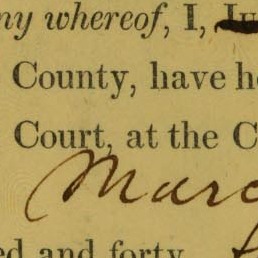 ny whereof, I, Ju
County, have he
Court, at the C
Marc
ed and forty